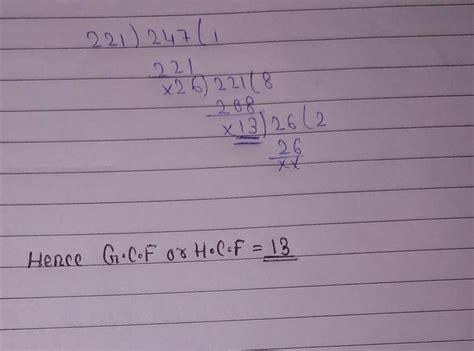 221) 247 (1
221
x26) 221 (8
208
x13) 26 (2
26
xx
Hence G.C.F or H.C.F = 13